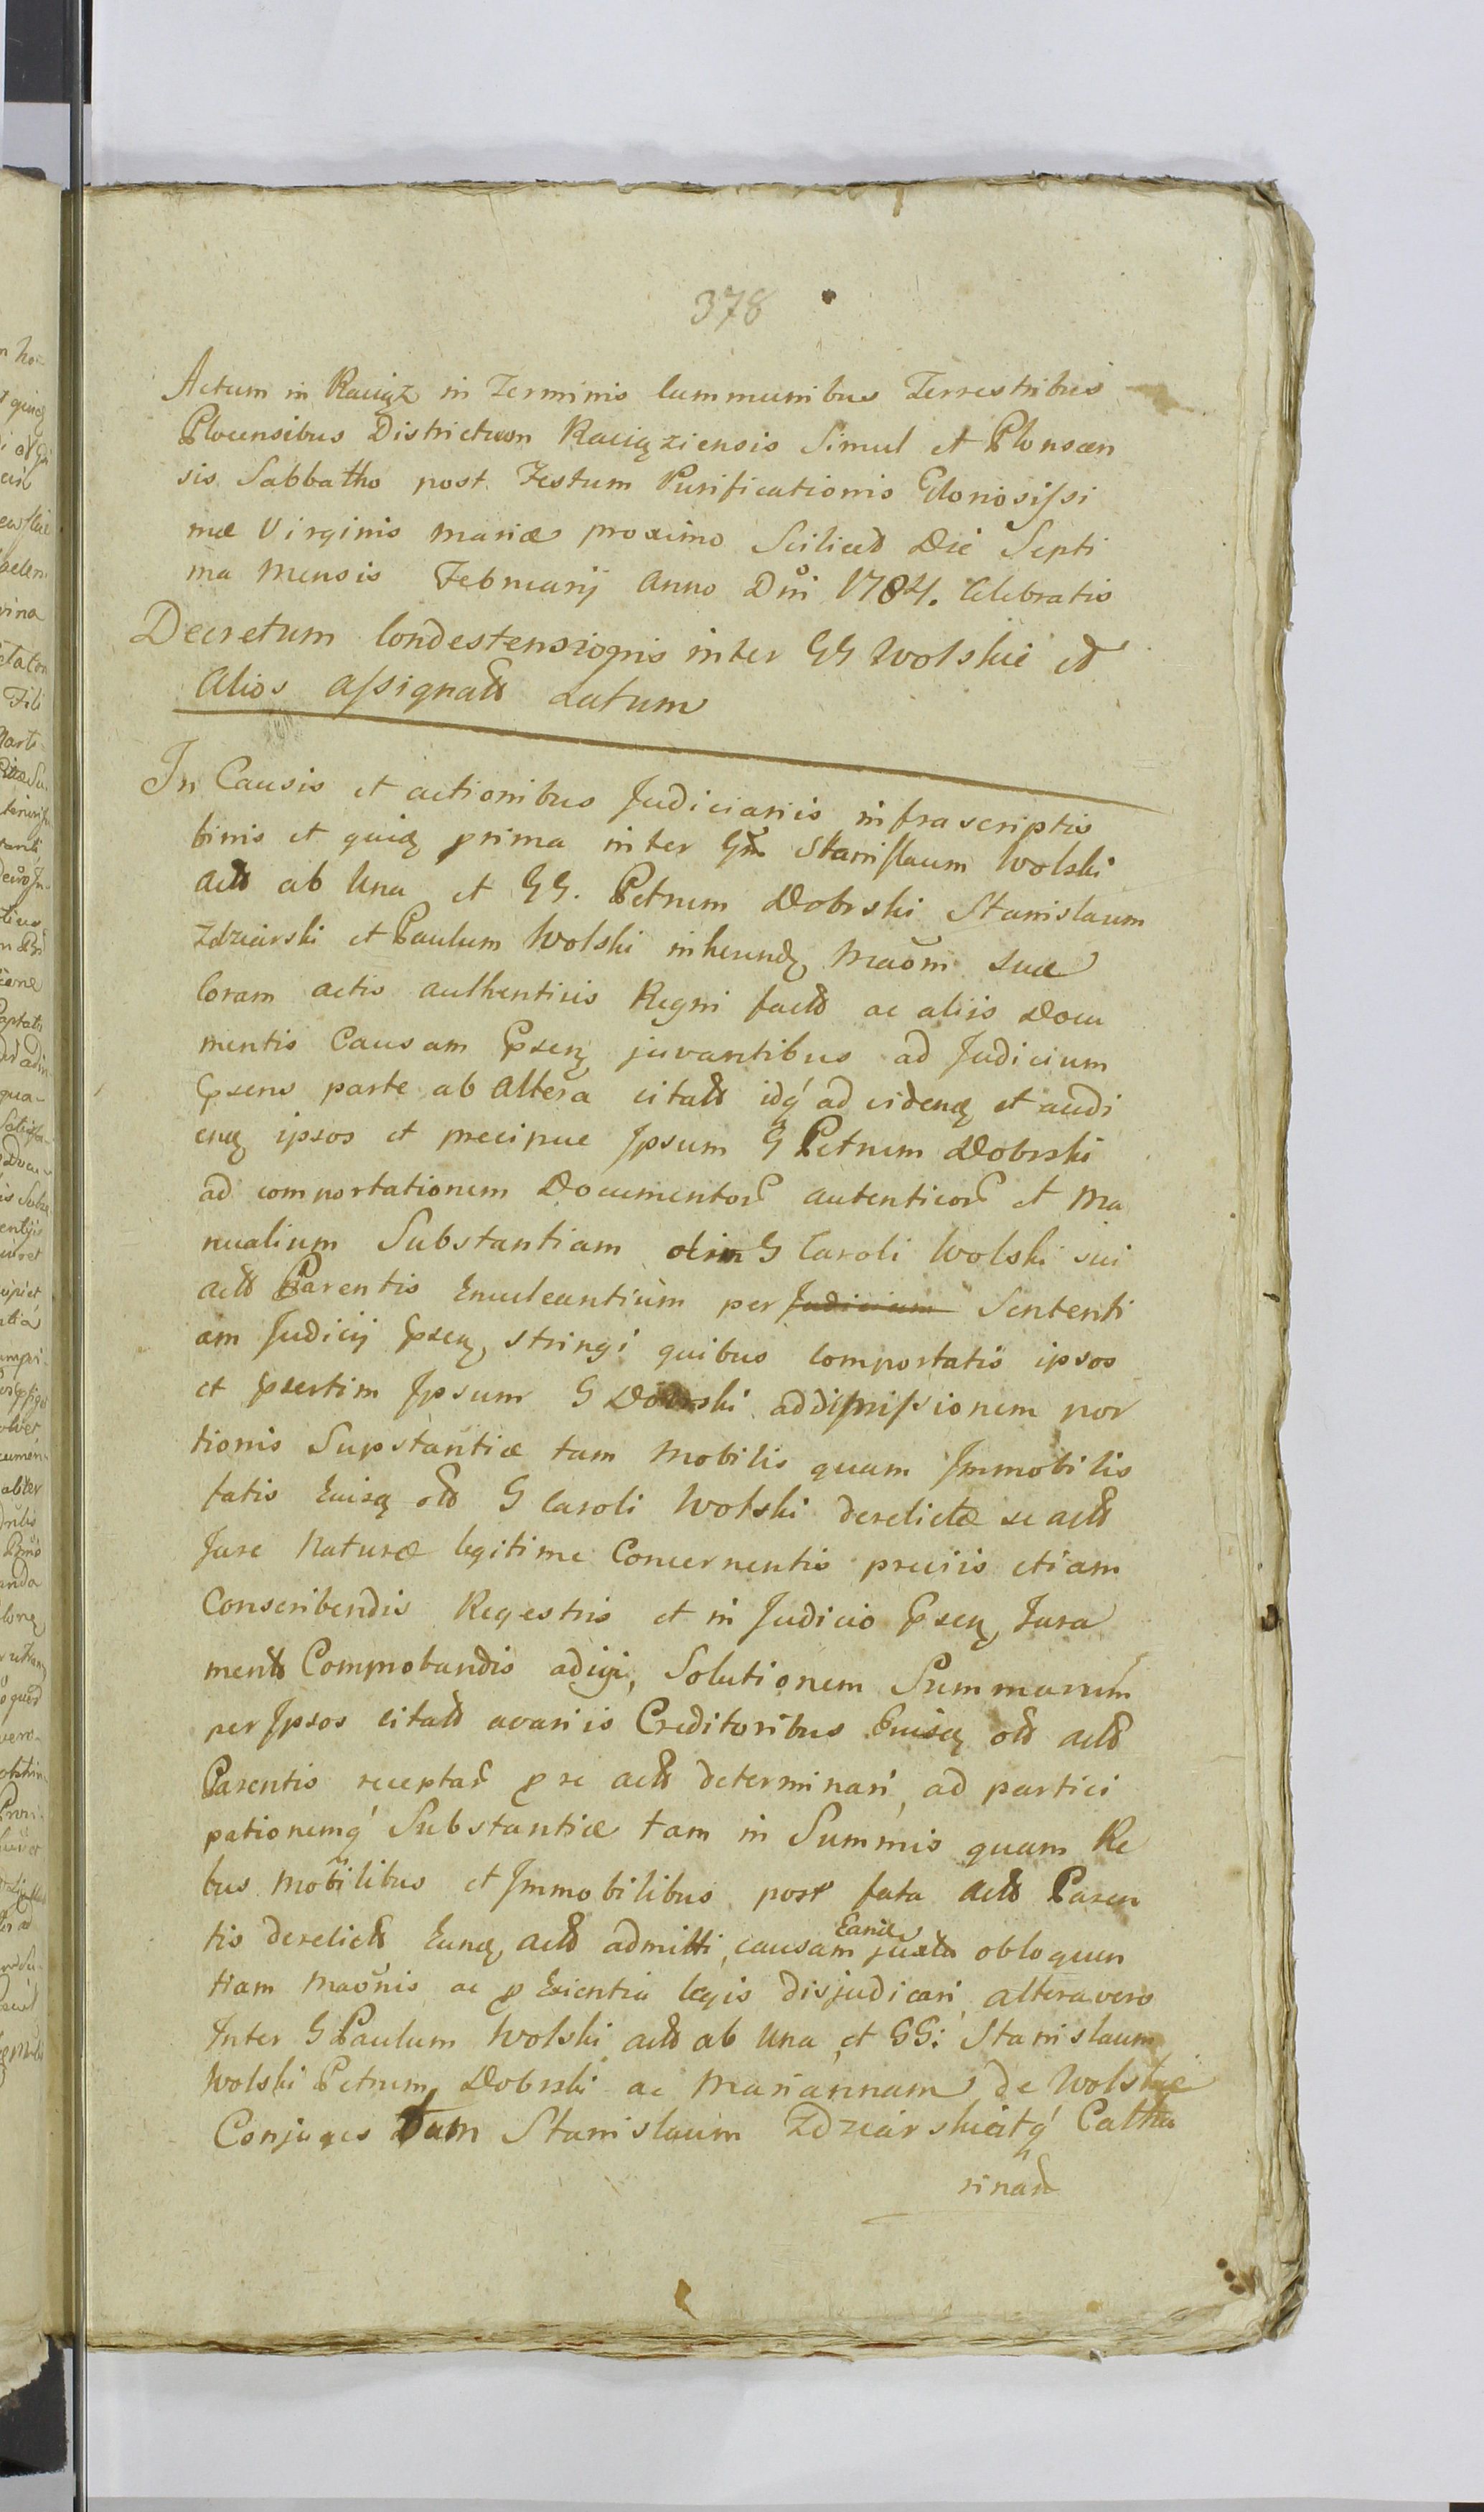 378
Actum in Raciąz in Terminis Communibus Terrestribus
Plocensibus Districtuum Raciąziensis Simul et Plonscen
sis Sabbatho post Festum Purificationis Gloriosissi
mæ Virginis Mariæ proximo Scilicet Die Septi
ma Mensis Februarij Anno Dni 1784. Celebratis
Decretum Condestensionis inter GG Wolskie et
Alios assignatt Latum
In Causis et actionibus Judiciariis infrascriptis
binis et quidę prima inter Gm Stanislaum Wolski
actt ab Una et GG. Petrum Dobrski Stanislaum
Zdziarski et Paulum Wolski inherendę Maōni suæ
Coram actis authenticis Regni factt ac aliis Docu
mentis Causam pseną juvantibus ad Judicium
psens parte ab Altera citatt idq́ ad videnđ et audi
enđ ipsos et precipue Ipsum G Petrum Dobrski
ad comportationem Documentor autenticor et Ma
nualium Substantiam olim G Caroli Wolski sui
actt Parentis Enucleantium per Judicium Sententi
am Judicij psenę stringi quibus Comportatis ipsos
et psertim Ipsum G Dobrski ad dimissionem por
tionis Supstantiæ tam Mobilis quam Immobilis
fatis Euisđ ott G Caroli Wolski derelictæ se actt
Jure Naturæ legitime Concernentis previis etiam
Conscribendis Regestris et in Judicio psenę Jura
mentt Comprobandis adigi, Solutionem Summarum
per Ipsos citatt avariis Creditoribus Euisđ ott actt
Parentis receptar p se actt determinari, ad partici
pationemq́ Substantiæ tam in Summis quam Re
bus Mobilibus et Immobilibus post fata actt Paren
tis derelictt Eunđ actt admitti, causam Eanđ juxta obloquen
tiam Maōnis ac p Exientia legis disjudicari altera vero
Inter G Paulum Wolski actt ab Una et GG: Stanislaum
Wolski Petrum Dobrski ac Mariannam de Wolskie
Conjuges Tum Stanislaum Zdziarski atq́ Catha
rinam